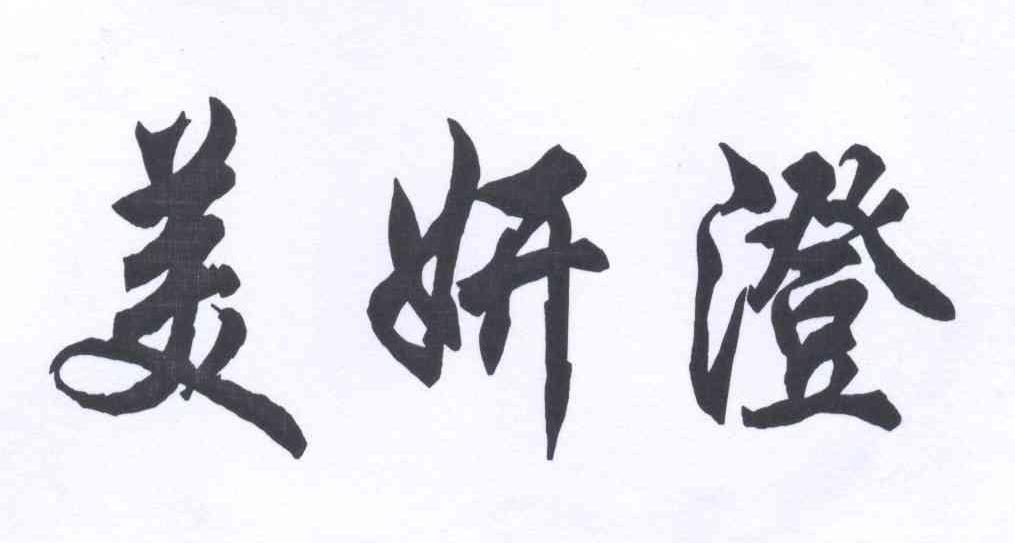 美妍澄